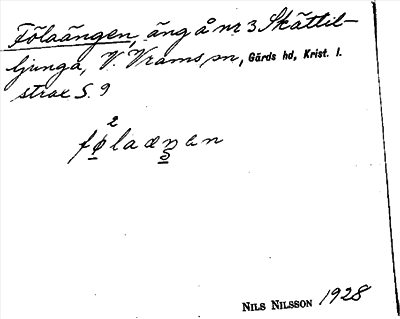 Fölaängen, äng å nr 3 Skättil-
ljunga, V. Vrams sn, Gärds hd, Krist. l.
strax S. 9
2
følaæŋən
NILS NILSSON 1928